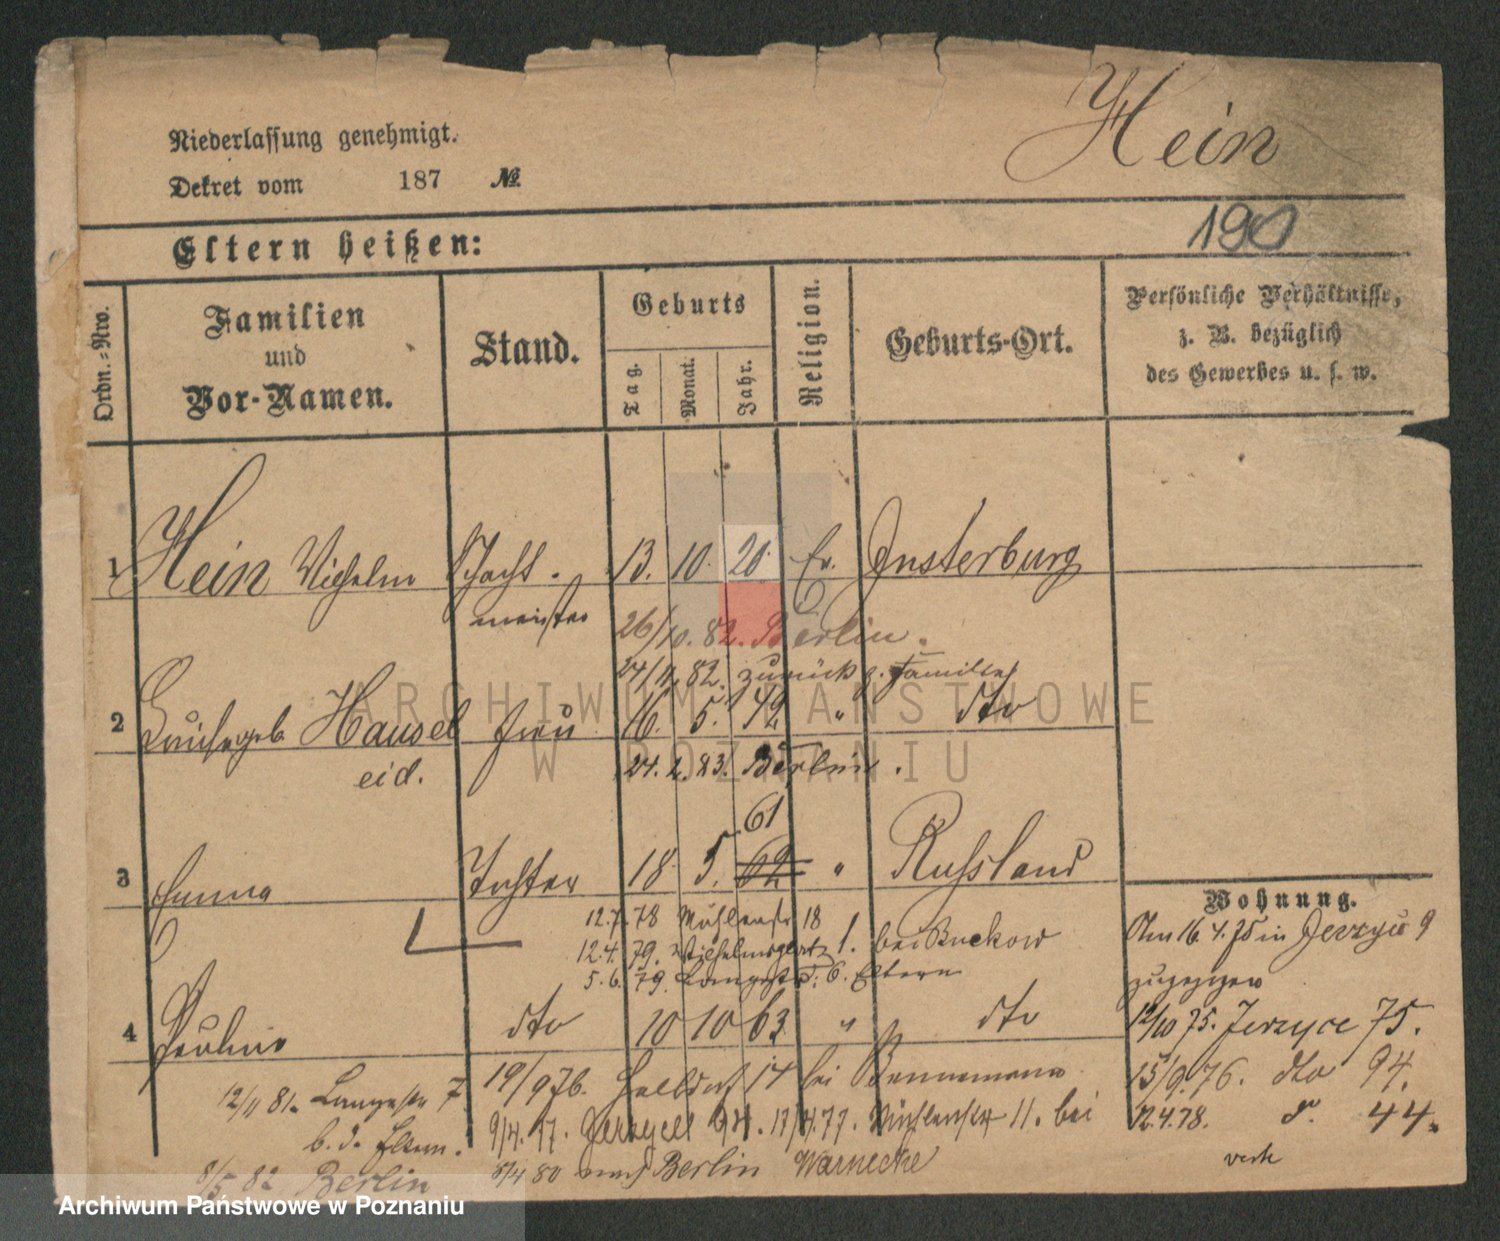 Niederlassung genehmigt.
Dekret vom 187 №
Hein
190
Eltern heißen:
Ordn.-Nro.
Familien
und
Vor-Namen.
Stand.
Geburts
Tag.
Monat.
Jahr.
Religion.
Geburts-Ort.
Persönliche Verhältnisse,
z. B. bezüglich
des Gewerbes u. s. w.
1 Hein Wilhelm Schacht- 13. 10. 20. Ev. Insterburg
meister
26/10. 82. Berlin.
24/11. 82. zurück z. Familie
2 Louise geb Hausel Frau 16. 5. 42 " dto
eid.
24. 2. 83. Berlin.
61
3 Emma Tochter 18 5. 62 " Russland
Wohnung.
12.7.78 Mühlenstr 18
12.4.79. Wilhelmsplatz 1. bei Buckow
5.6.79. Langestr. 6. Eltern
Am 16.4.75 in Jerzyce 9
zugezogen
4 Pauline dto 10 10 63 " dto
12/10 75. Jerzyce 75.
19/9 76. 14 bei
15/9. 76. dto 94.
12/11 81. Langestr 7
b. d. Eltern.
9/4. 77. Jerzyce 94. 17/4.77. Mühlenstr 11. bei
Warnecke
12.4.78. do. 44.
8/5 82 Berlin
8/4 80 nach Berlin
verte
ARCHIWUM PAŃSTWOWE
W POZNANIU
Archiwum Państwowe w Poznaniu